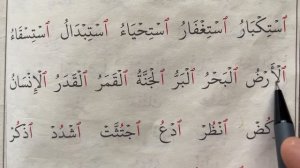 اَسْتِكْبَارُ اَسْتِغْفَارُ اَسْتِحْيَاءُ اَسْتِبْدَالُ اَسْتِسْقَاءُ
اَلْأَرْضُ اَلْبَحْرُ اَلْبَرُّ اَلْجَنَّةُ اَلْقَمَرُ اَلْقَدَرُ اَلْإِنْسَانُ
اُنْظُرْ اُدْعُ اُجْتُثَّتْ اُشْدُدْ اُذْكُرْ